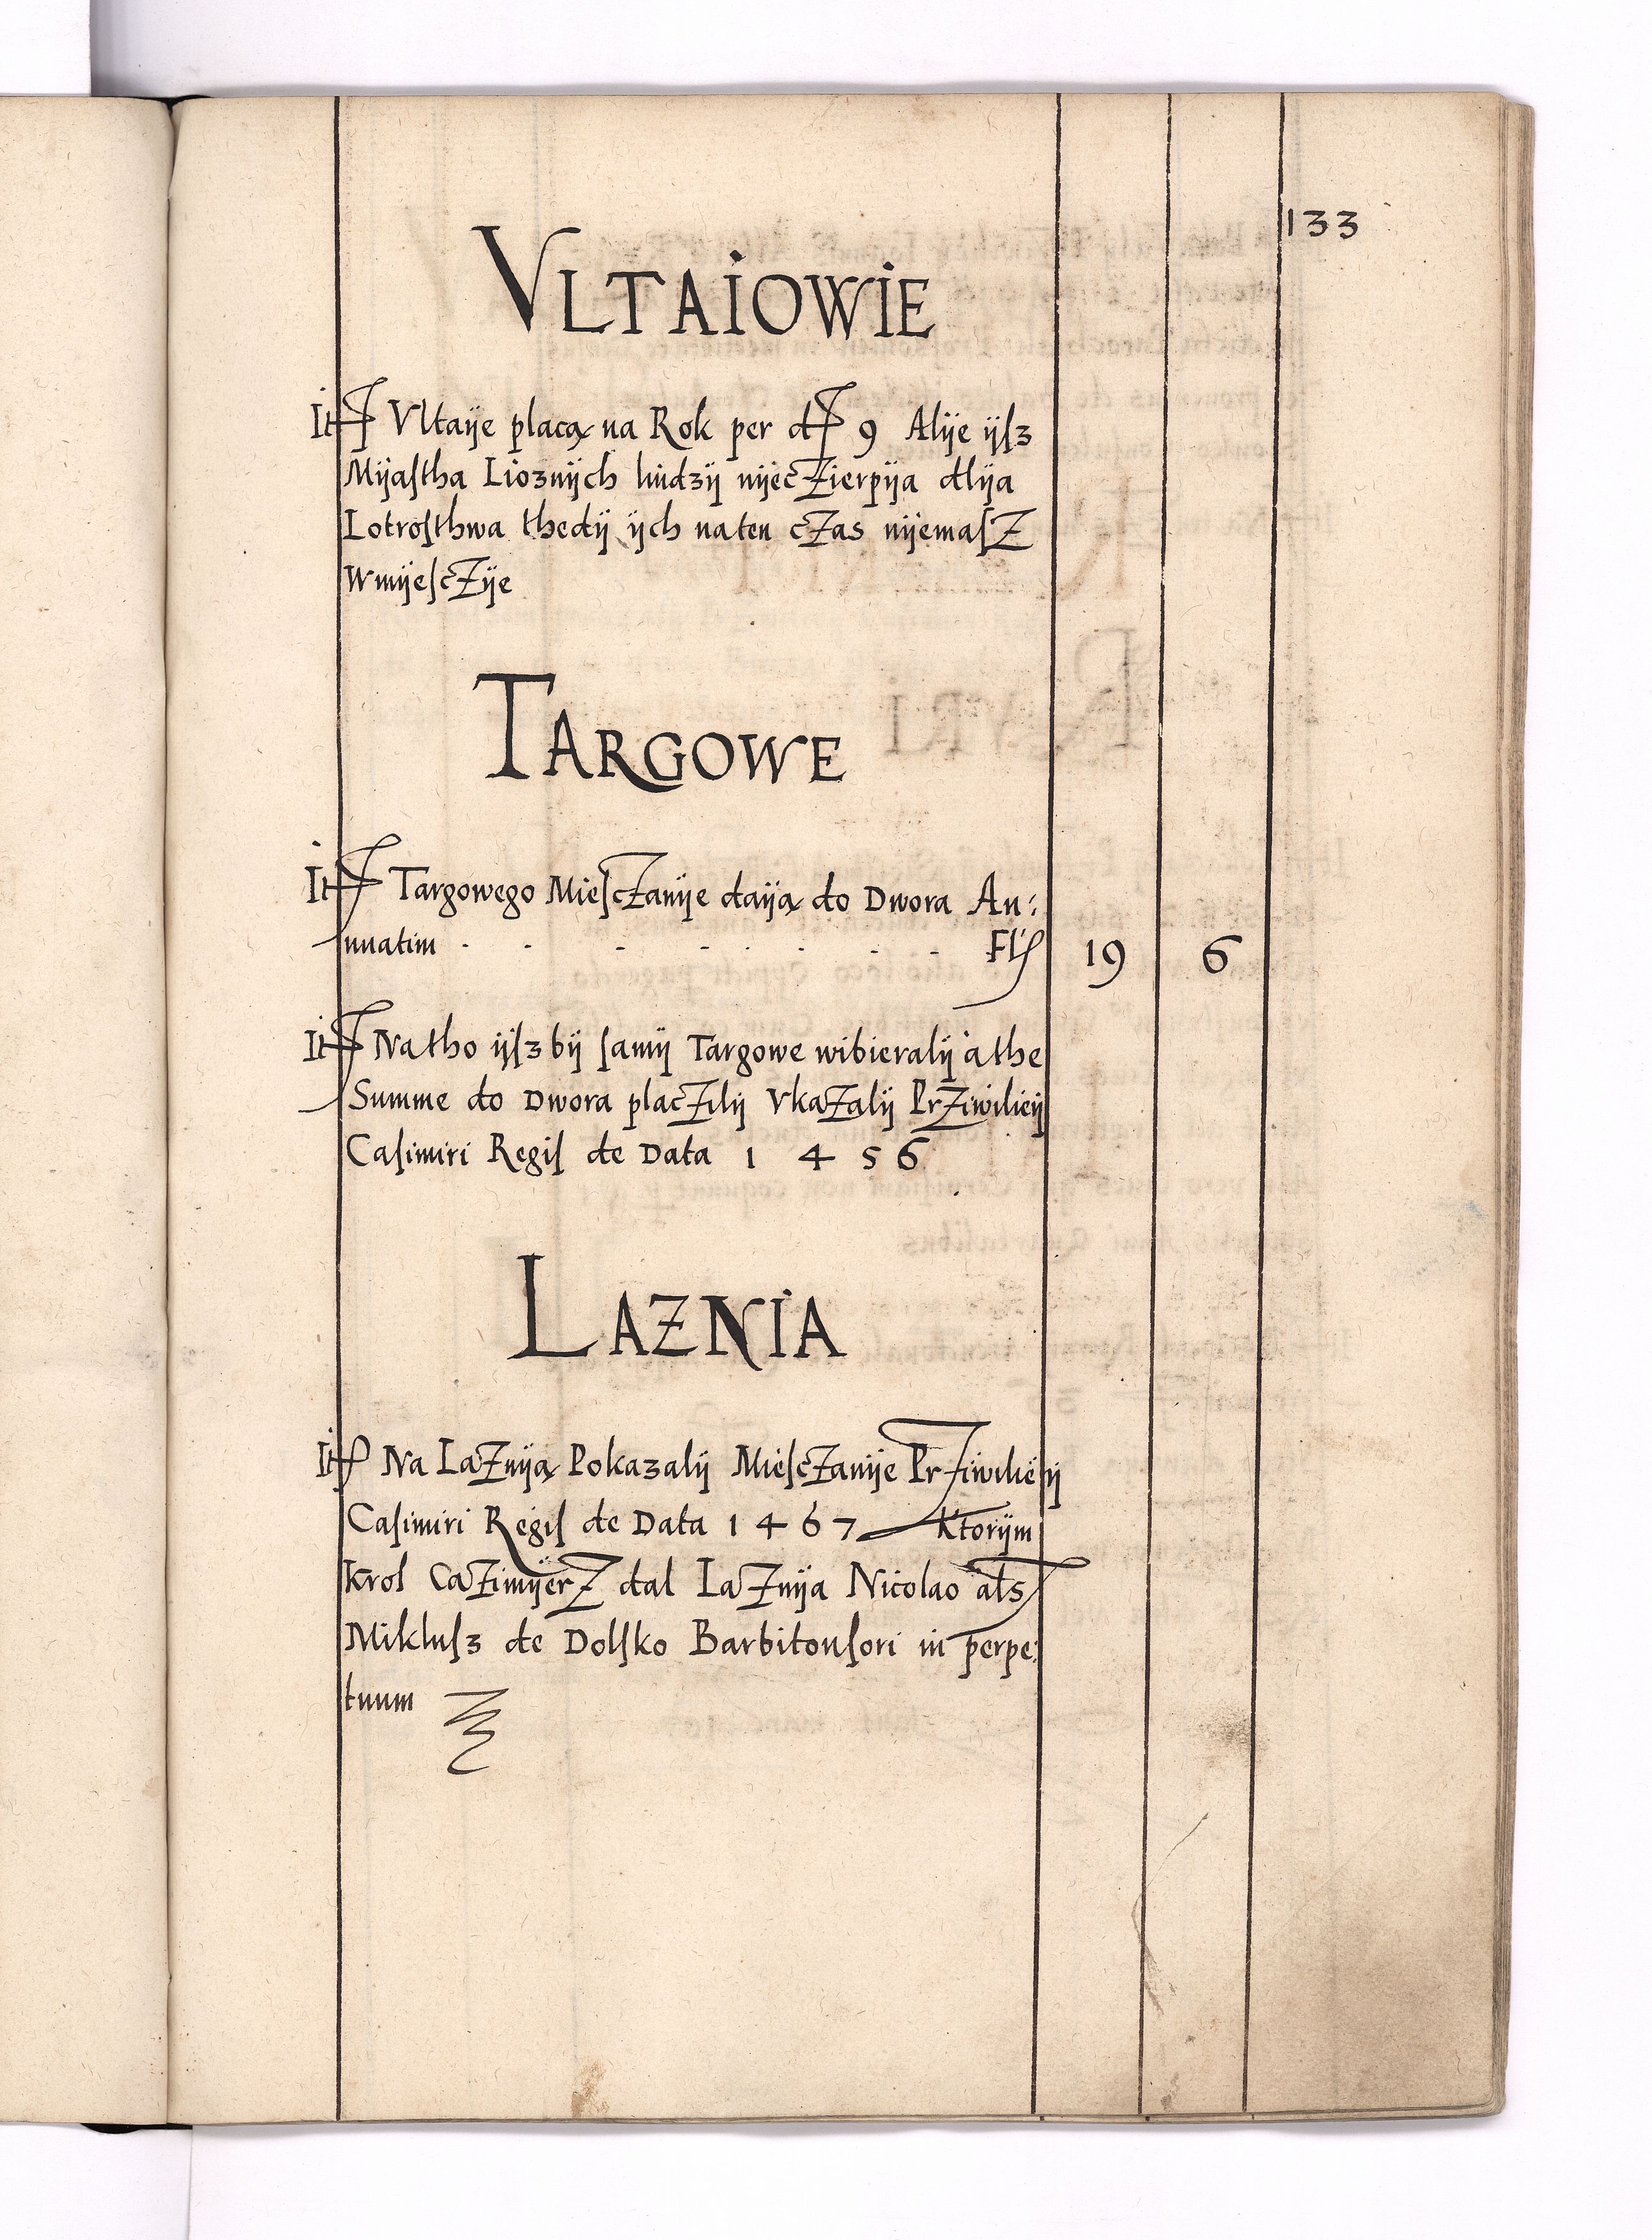 133
VLTAIOWIE
It Vltaÿe placą na Rok per d 9 Alÿe ÿſz
Mÿaſtha Lioznÿch ludzÿ nÿecZierpÿa dlÿa
Lotroſthwa thedÿ ÿch na ten cZas nÿemaſZ
WmÿeſcZÿe
TARGOWE
It Targowego MieſcZanÿe daÿą do Dwora An:
nuatim - - - - - - - Fl 19 6
It Natho ÿſzbÿ ſamÿ Targowe wibieralÿ a the
Summe do Dwora placZilÿ VkaZalÿ PrZiwilieÿ
Caſimiri Regiſ de Data 1 4 5 6
LAZNIA
It Na LaZnÿą Pokazalÿ MieſcZanÿe PrZiwilieÿ
Caſimiri Regiſ de Data 1 4 6 7 Ktorÿm
Krol CaZimÿerZ dal LaZnÿa Nicolao als
Mikluſz de Dolſko Barbitonſori in perpe:
tuum